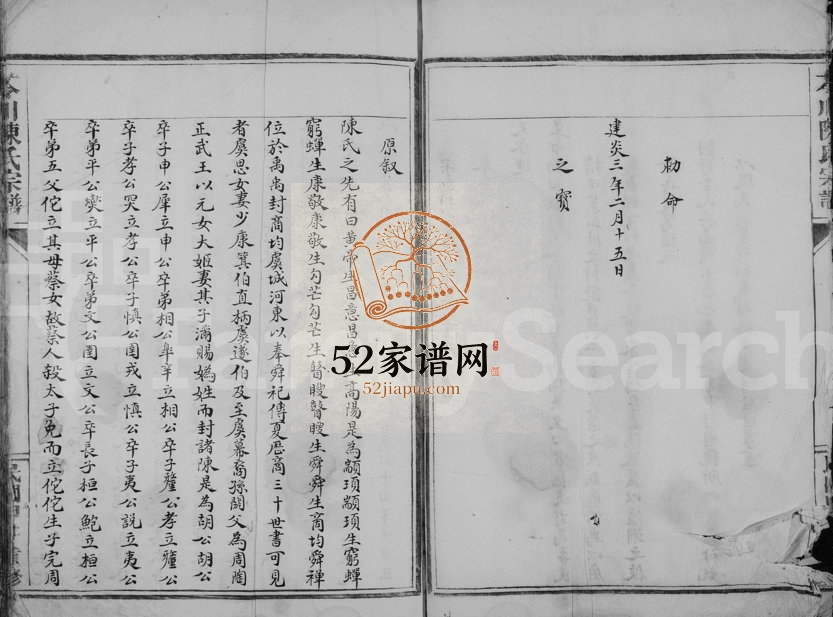 勅命
建炎三年二月十五日
之寳
原叙
陳氏之先有曰黄帝生昌意昌高陽是為顓頊顓頊生窮蟬
窮蟬生康敬康敬生勾芒勾芒生瞽瞍瞽瞍生舜舜生商均舜禅
位於禹禹封商均虞城河東以奉舜祀傳夏歴商三十世書可見
者虞思女妻少康箕伯直柄虞遂伯及至虞幕裔孫閼父為周陶
正武王以元女大姬妻其子滿賜媯姓而封諸陳是為胡公胡公
卒子申公犀立申公卒弟相公臯立相公卒子釐公孝立釐公
卒子孝公突立孝公卒子慎公圉戎立慎公卒子夷公説立夷公
卒弟平公燮立平公卒弟文公圉立文公卒長子桓公鮑立桓公
卒弟五父佗立其母蔡女故蔡人殺太子免而立佗佗生子完周
川陳氏宗譜
52家谱网
52jiapu.com
Search